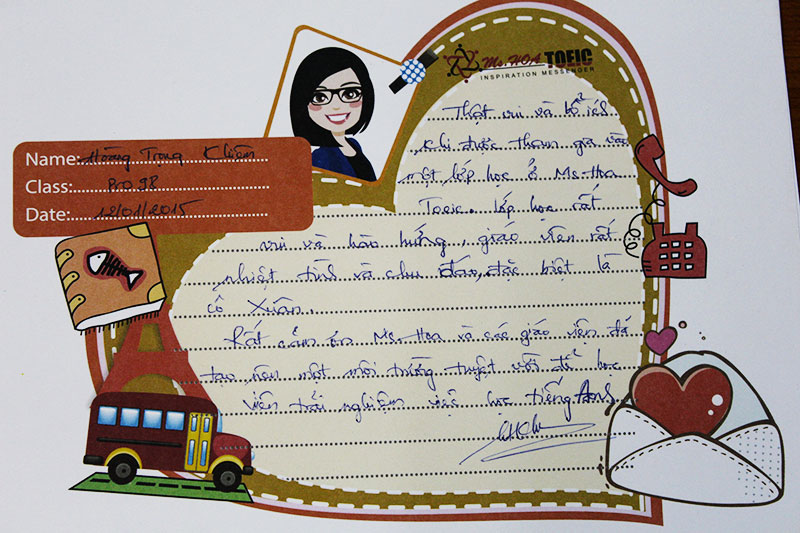 Ms.HOA TOEIC
INSPIRATION MESSENGER
Name: Hoàng Trọng Khiêm
Class: Pro 98
Date: 12/01/2015
Thật vui và bổ ích
khi được tham gia vào
một lớp học ở Ms Hoa
Toeic. Lớp học rất
vui và hào hứng, giáo viên rất
nhiệt tình và chu đáo, đặc biệt là
cô Xuân.
Rất cảm ơn Ms. Hoa và các giáo viên đã
tạo nên một môi trường tuyệt vời để học
viên trải nghiệm việc học tiếng Anh.